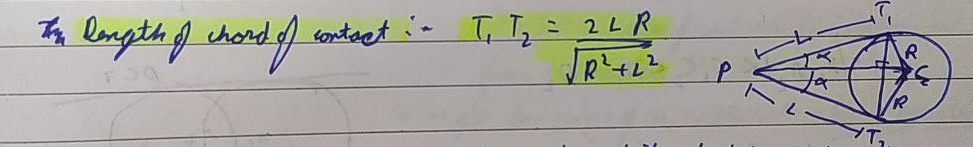 Length of chord of contact :- T₁ T₂ = 2 L R
√R²+L²
T₁
L
R
α
P
C
α
R
L
T₂